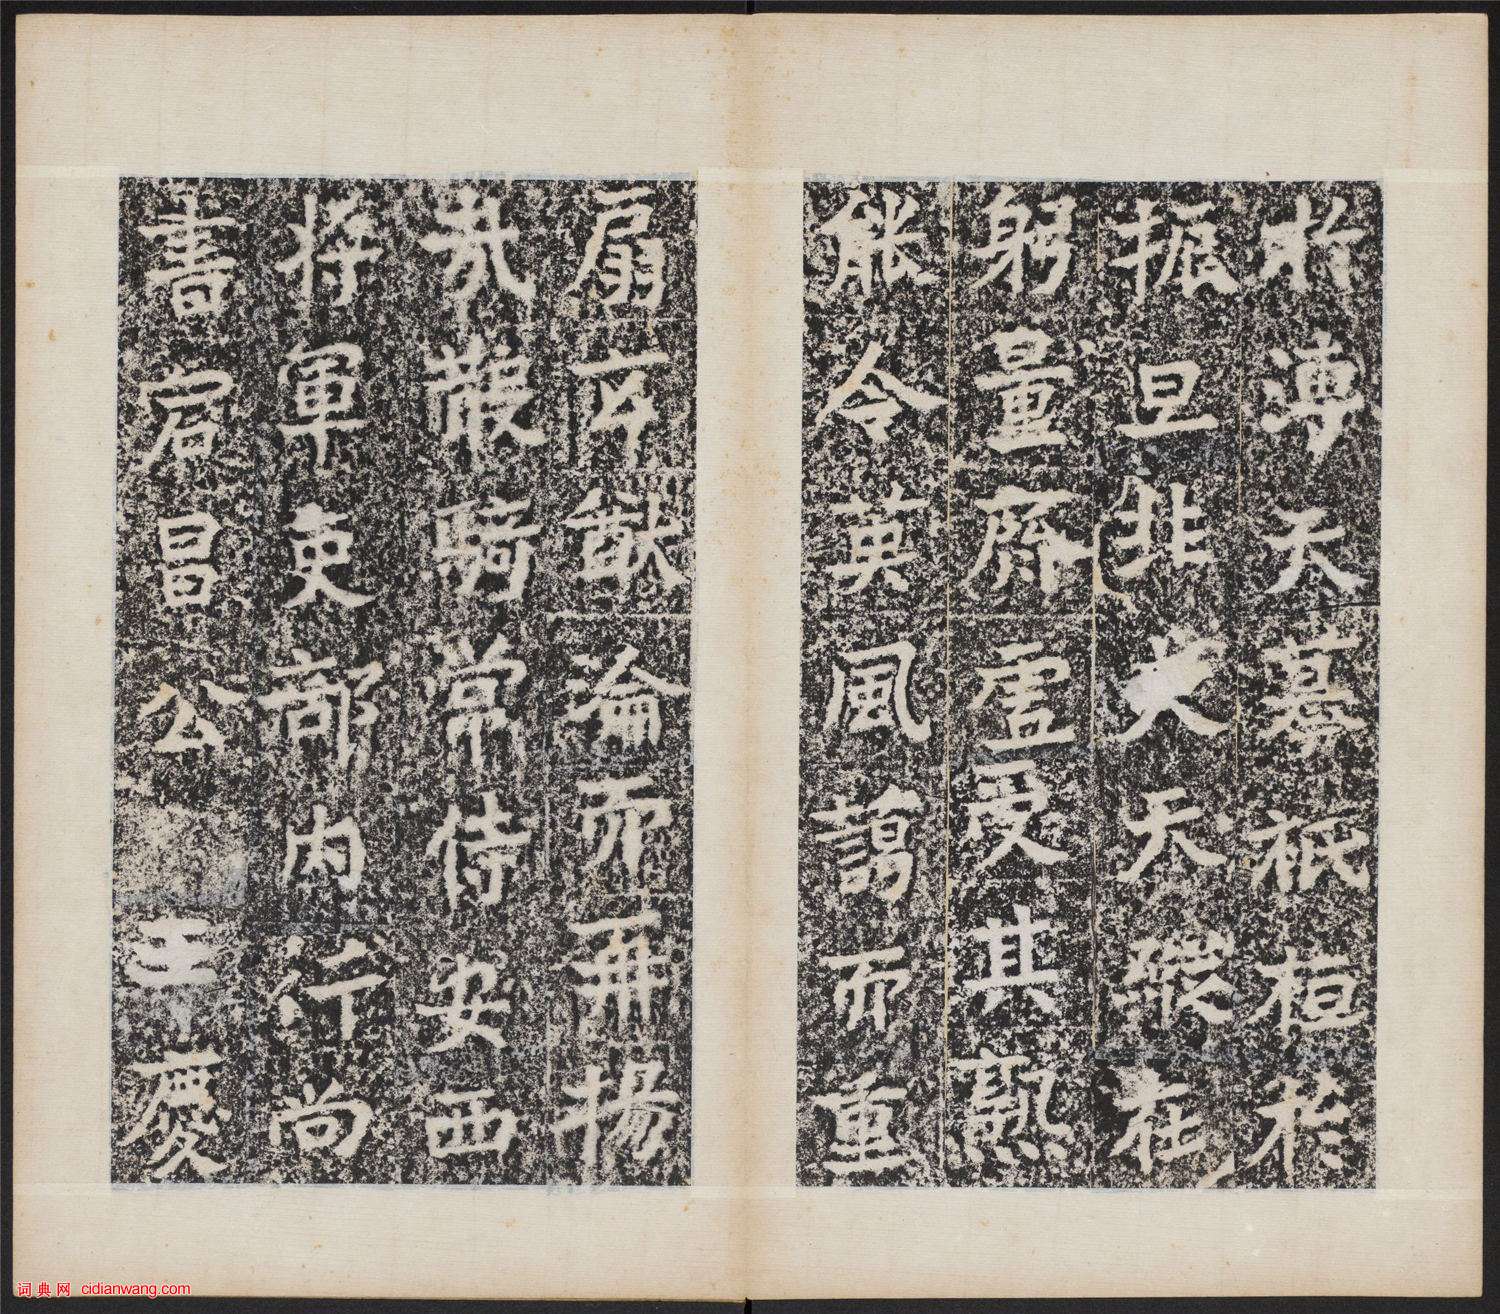 於溥天慕祇桓於
振旦非夫天縱在
躬量齊虛受其孰
能令英風藹而重
扇玄猷淪而再揚
哉散騎常侍安西
將軍吏部內行尚
書宕昌公王慶
词典网 cidianwang.com